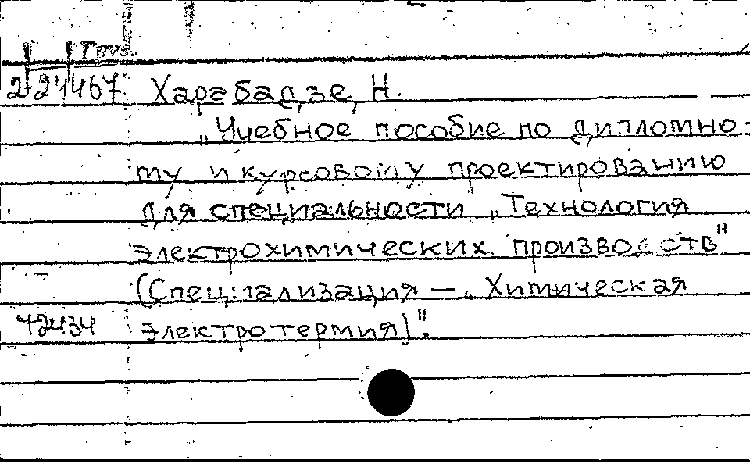 224467 Харабадзе, Н.
„Учебное пособие по дипломно-
му и курсовому проектированию
для специальности „Технология
электрохимических производств"
(Специализация — „Химическая
42434 электротермия)".